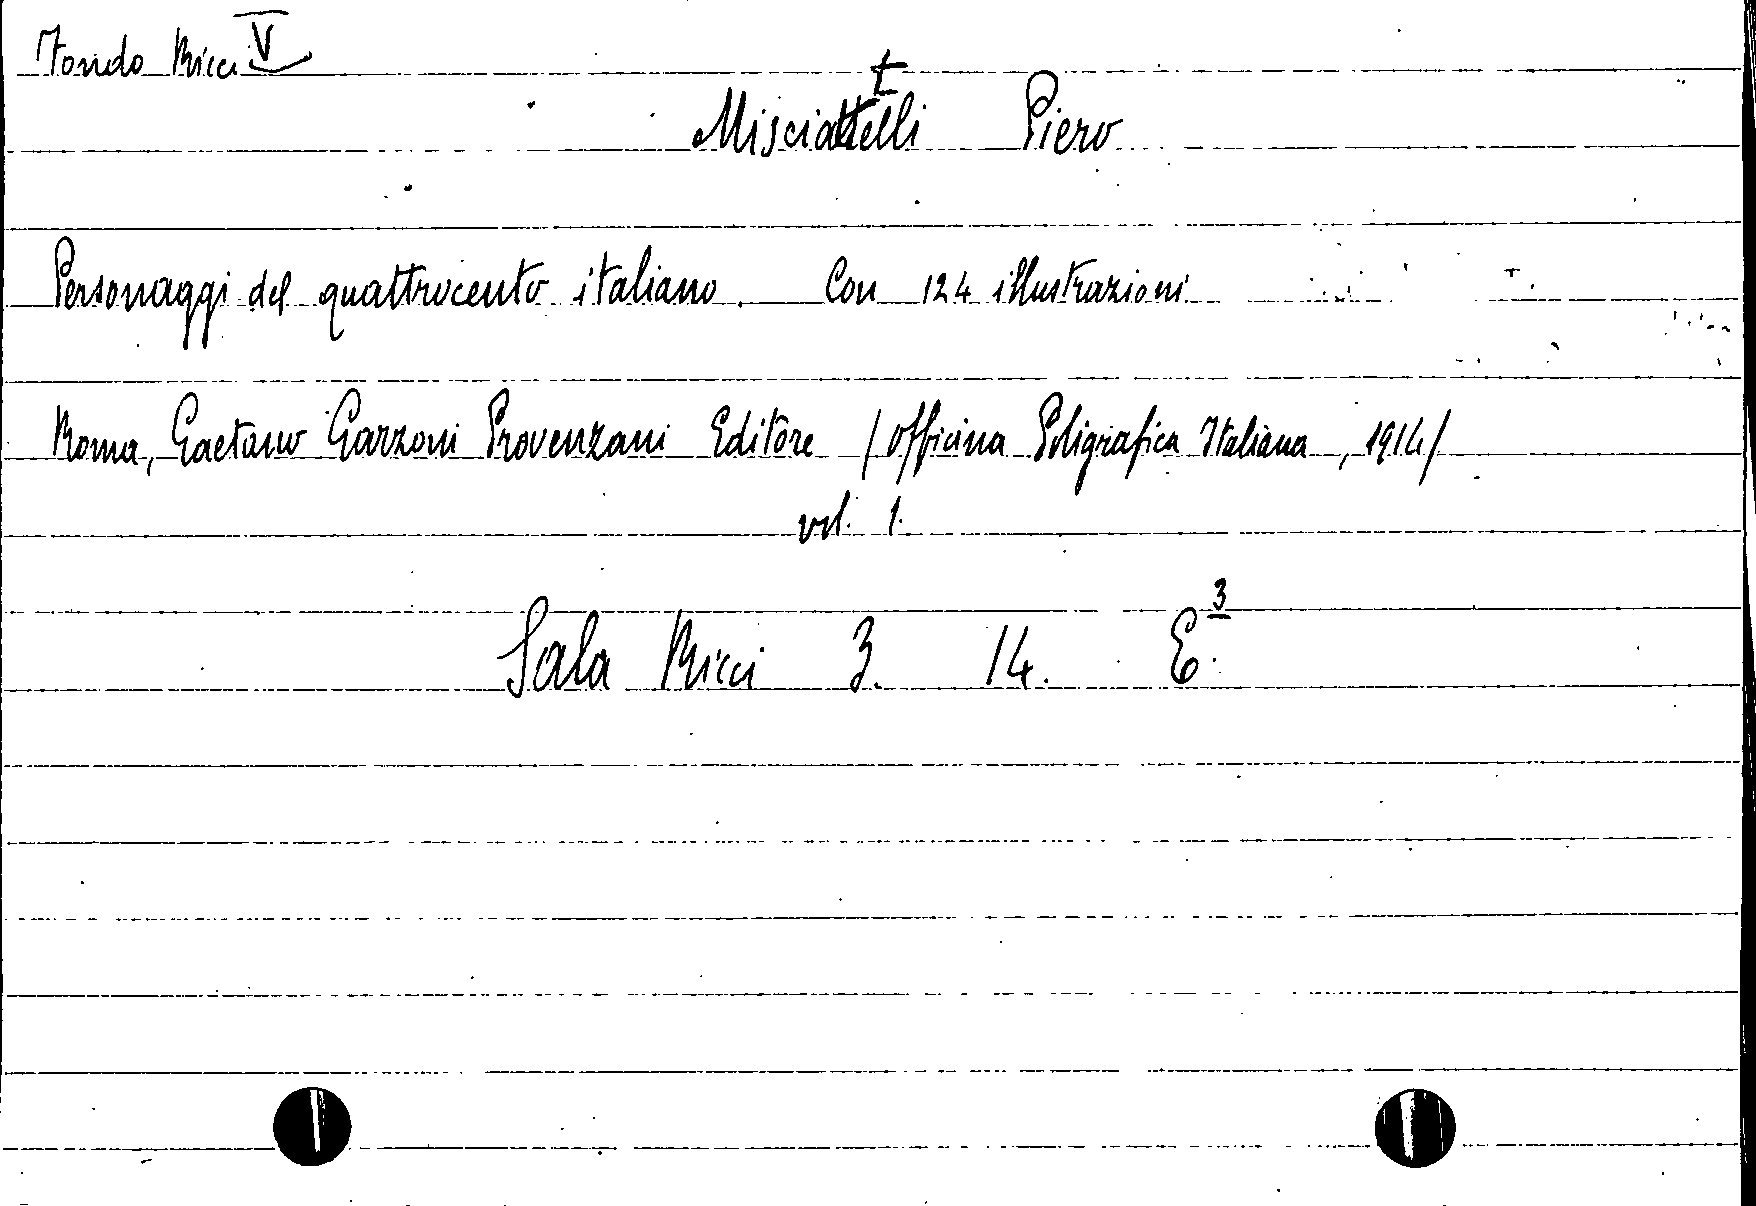 Fondo Ricci V
Misciattelli Piero
Personaggi del quattrocento italiano. Con 124 illustrazioni
Roma, Gaetano Garzoni Provenzani Editore /Officina Poligrafica Italiana, 1914/
vol. 1.
Sala Ricci 3. 14. E.3